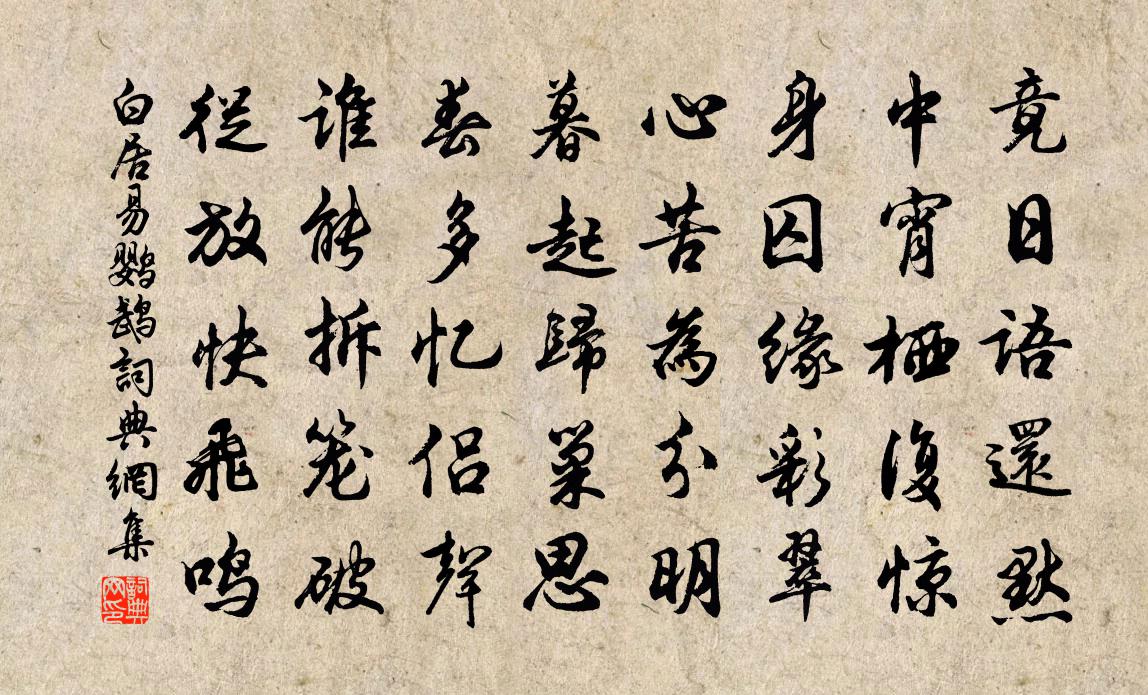 竟日語還默
中宵栖復惊
身囚緣彩翠
心苦為分明
暮起歸巢思
春多忆侣聲
谁能拆笼破
從放快飛鸣
白居易鹦鵡詞典網集
詞典网印